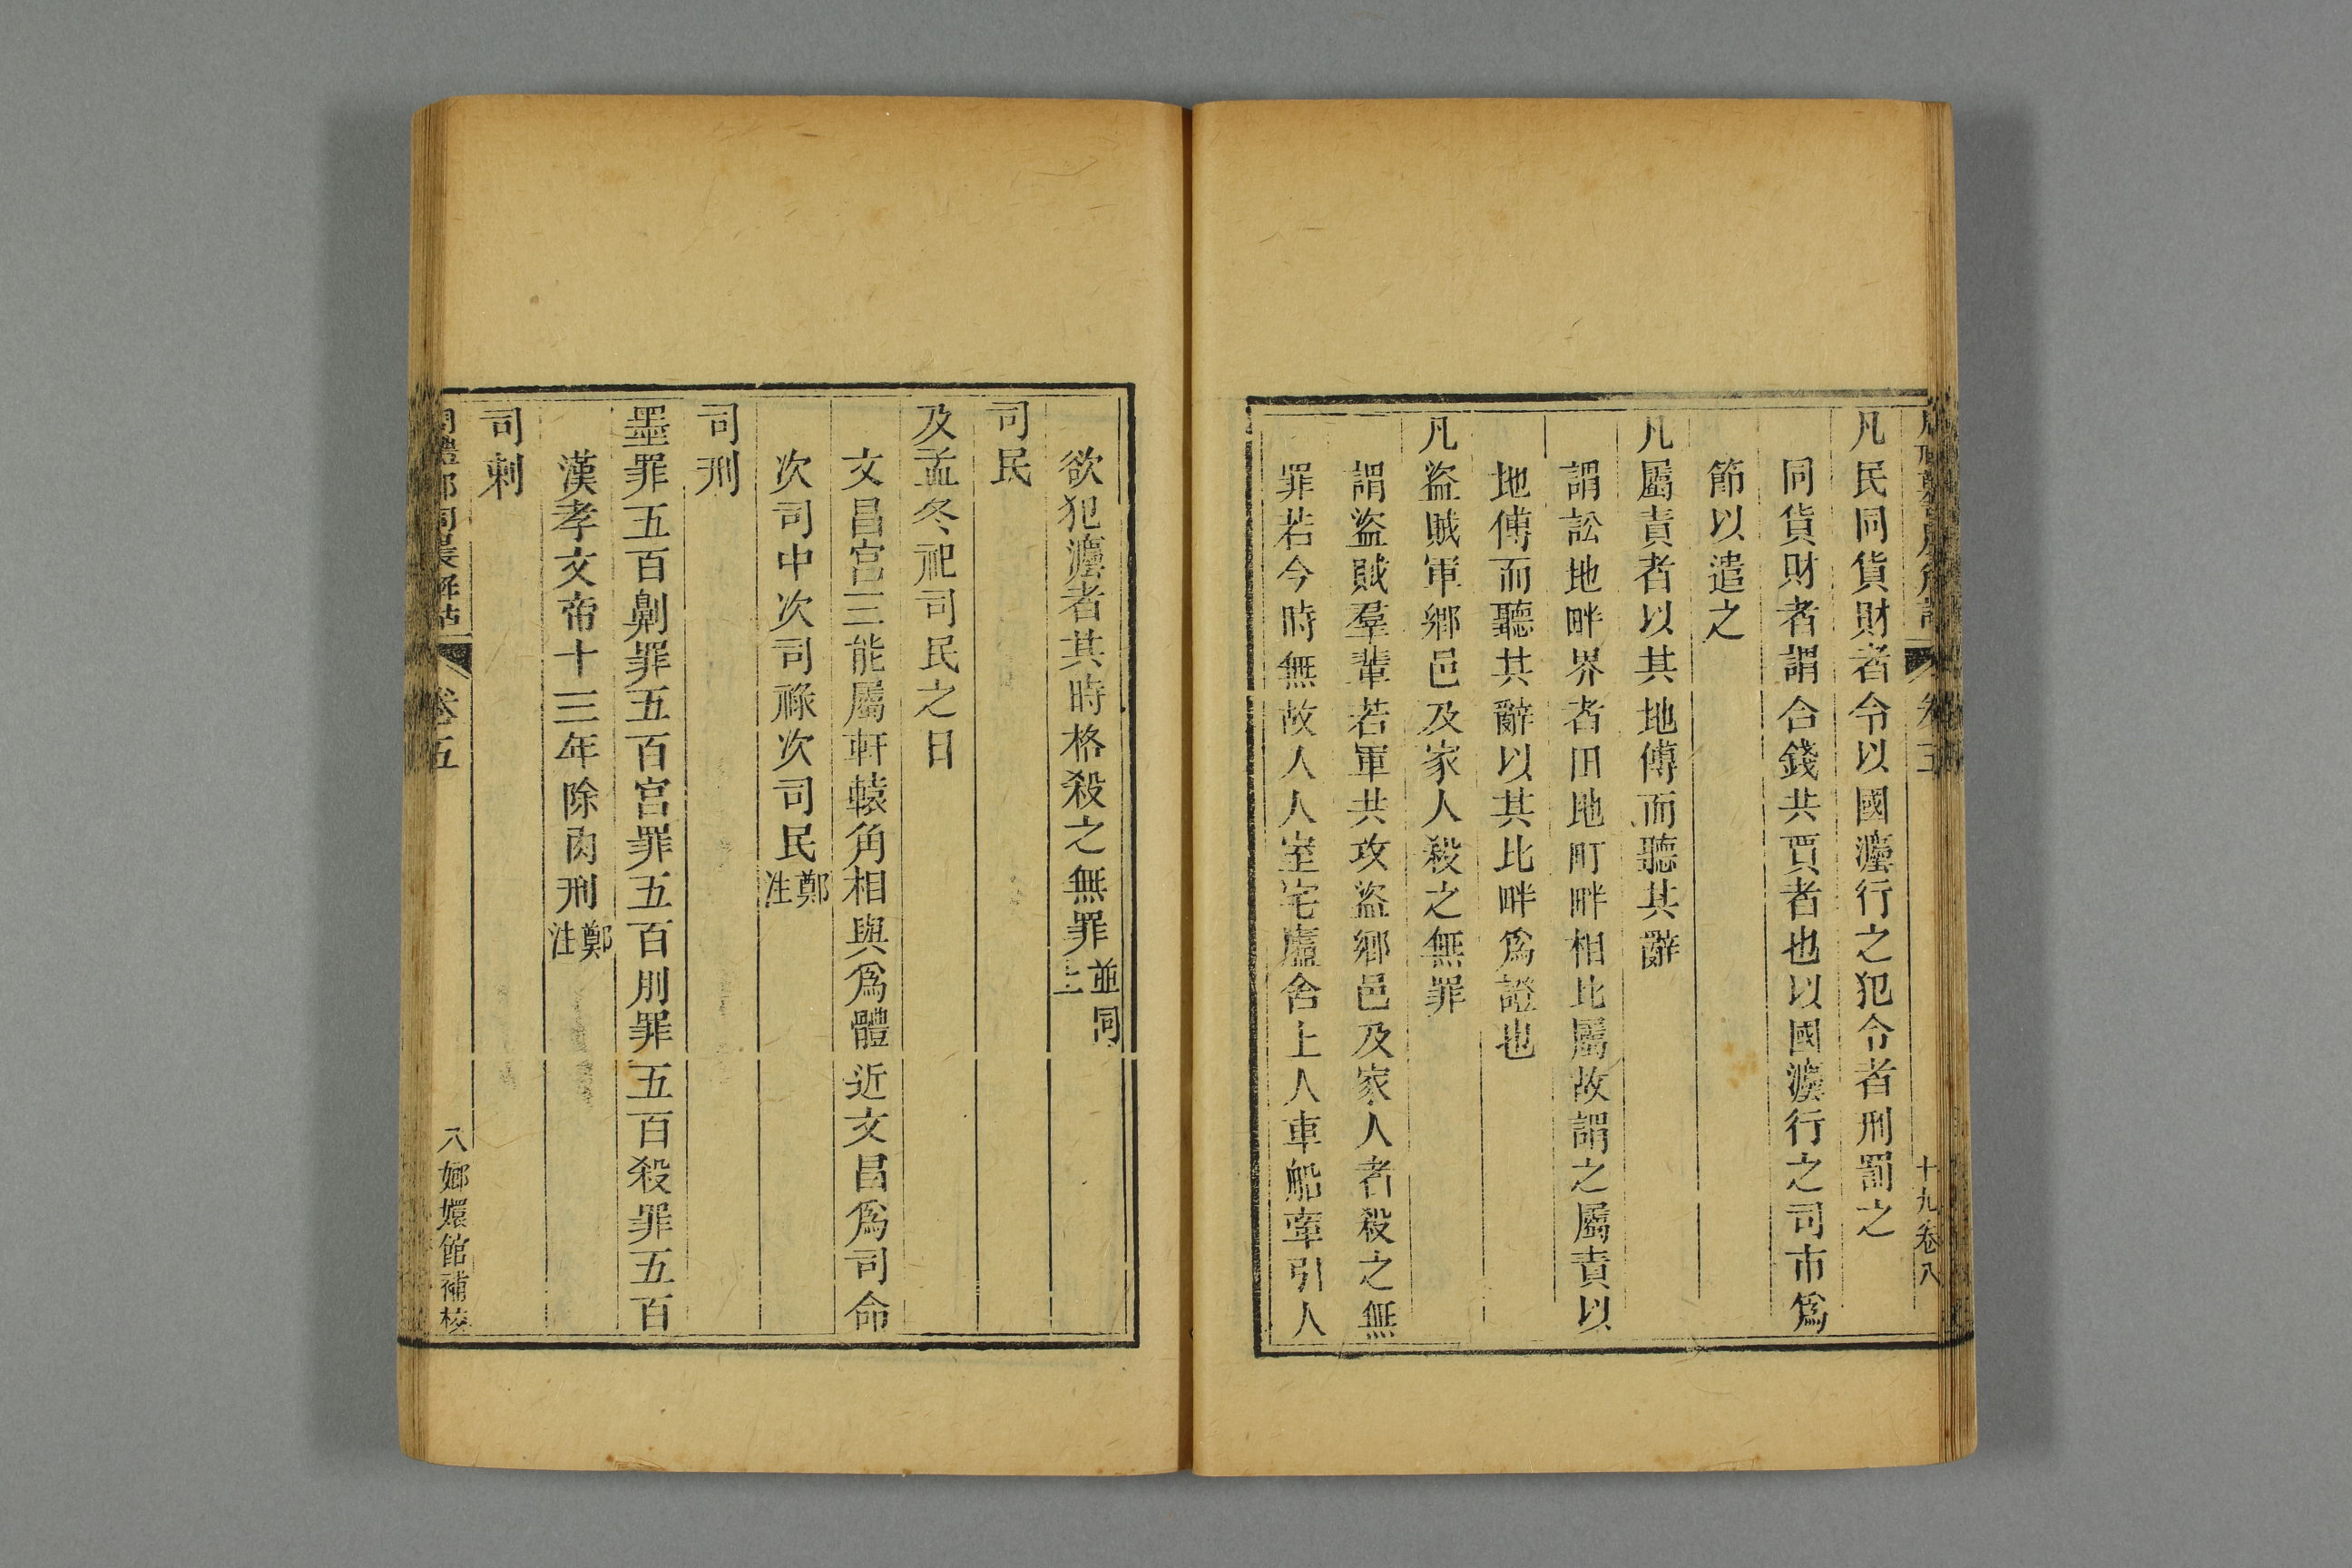 凡民同貨財者令以國灋行之犯令者刑罰之
同貨財者謂合錢共賈者也以國灋行之司市爲
節以遣之
凡屬責者以其地傅而聽其辭
謂訟地畔界者田地町畔相比屬故謂之屬責以
地傅而聽其辭以其比畔爲證也
凡盜賊軍鄉邑及家人殺之無罪
謂盜賊羣輩若軍共攻盜鄉邑及家人者殺之無
罪若今時無故入人室宅廬舍上人車船牽引人
欲犯灋者其時格殺之無罪並同上
司民
及孟冬祀司民之日
文昌宮三能屬軒轅角相與爲體近文昌爲司命
次司中次司祿次司民鄭注
司刑
墨罪五百劓罪五百宮罪五百刖罪五百殺罪五百
漢孝文帝十三年除肉刑鄭注
司刺
卷五
八嫏嬛館補校
十九卷八